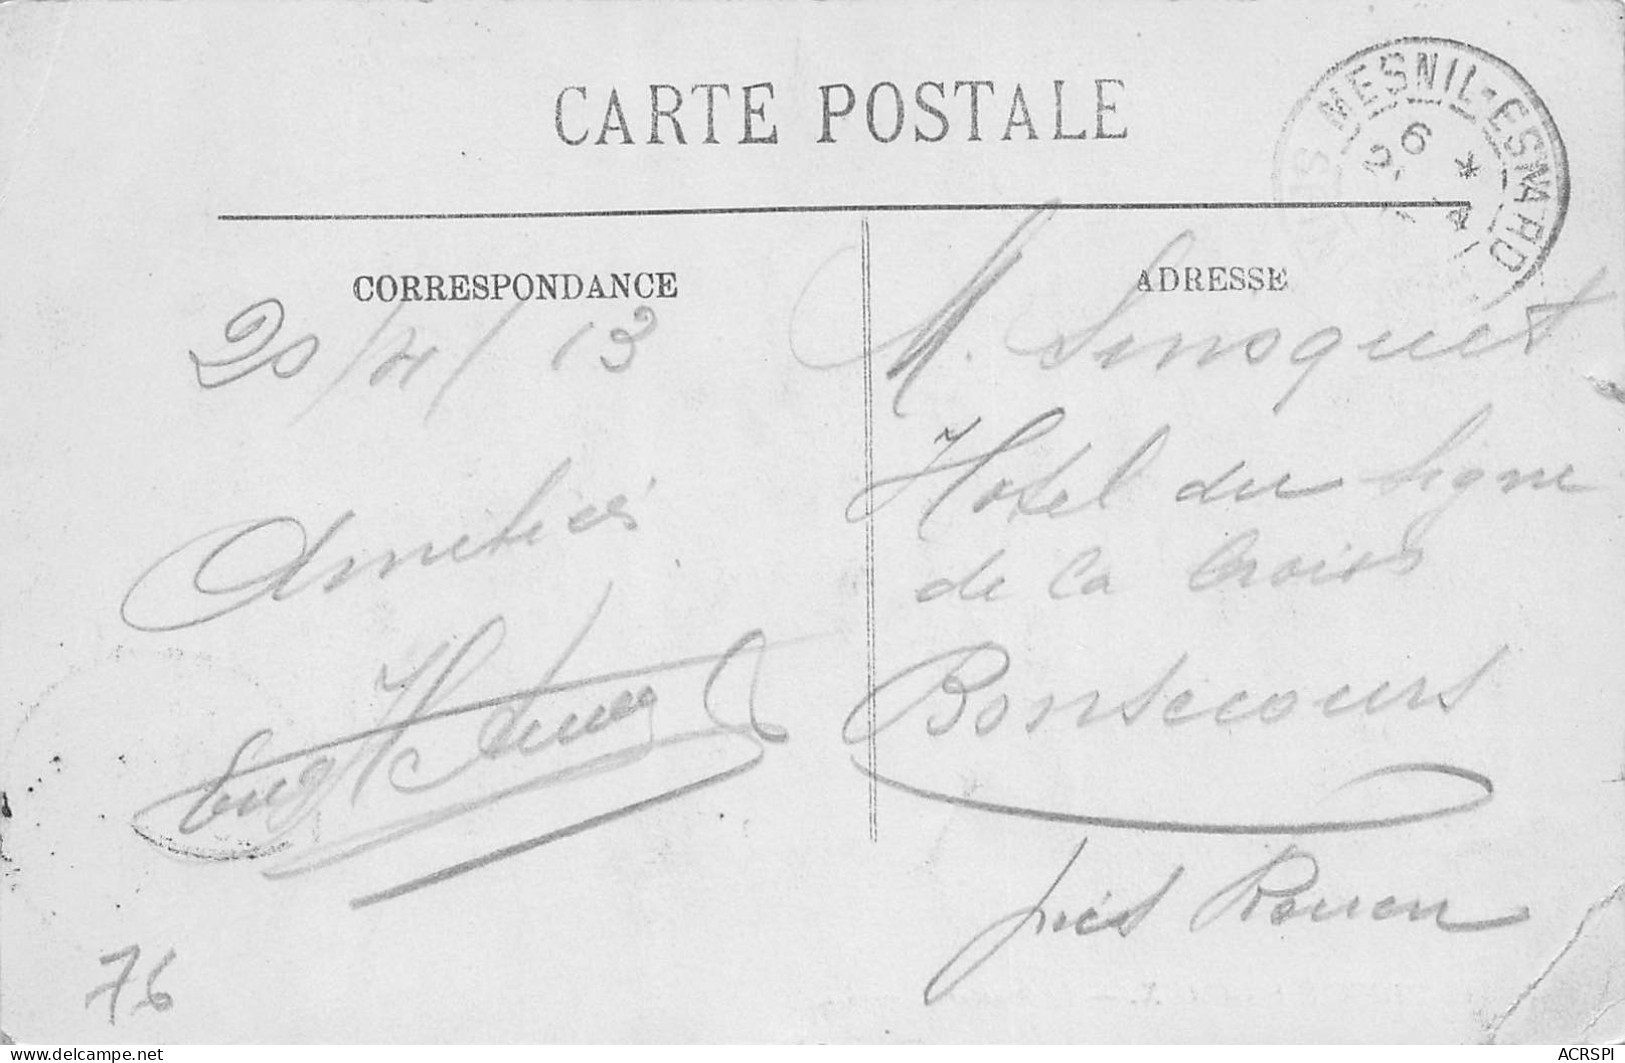 CARTE POSTALE
MESNIL-ESNARD
6
CORRESPONDANCE
20/4/13
Amitiés
76
ADRESSE
M. Sinoquet
Hotel du Signe
de la Croix
Bonsecours
près Rouen
www.delcampe.net
ACRSPI